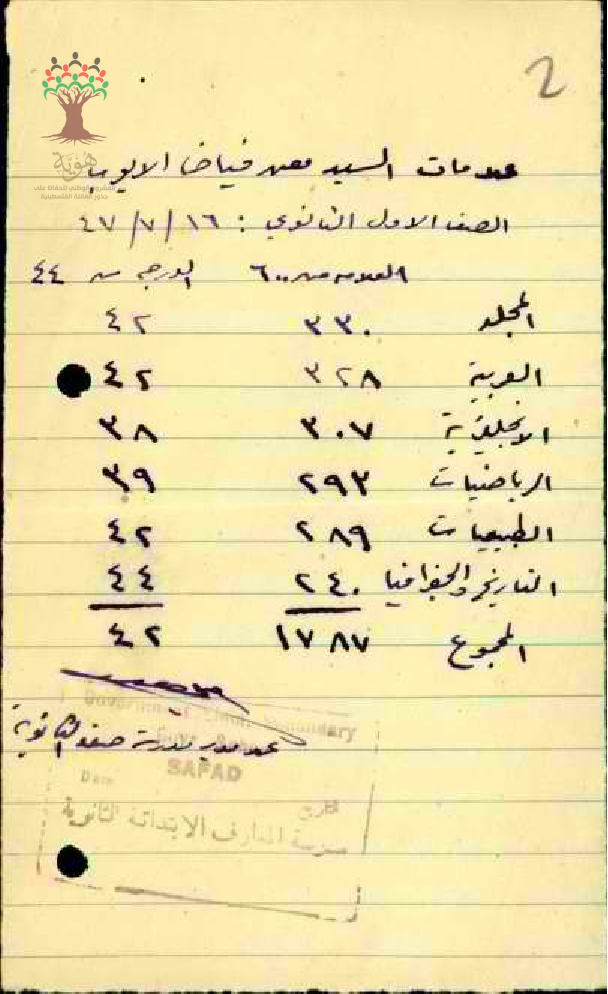 2
هوية
المشروع الوطني للحفاظ على
جذور العائلة الفلسطينية
علامات السيد معن فياض الايوب
الصف الاول الثانوي : ١٦ / ٧ / ٤٧
العلامه من ٦٠٠ الدرجه من ٤٤
المجلد ٣٣٠ ٤٢
العربية ٣٢٨ ٤٢
الانجليزية ٣٠٧ ٣٨
الرياضيات ٢٩٣ ٣٩
الطبيعيات ٢٨٩ ٤٢
التاريخ والجغرافيا ٢٤٠ ٤٤
المجموع ١٧٨٧ ٤٢
Government Secondary
عن مدير مدرسة صفد الثانوية
SAFAD
Date التاريخ
مدرسة المعارف الابتدائية الثانوية